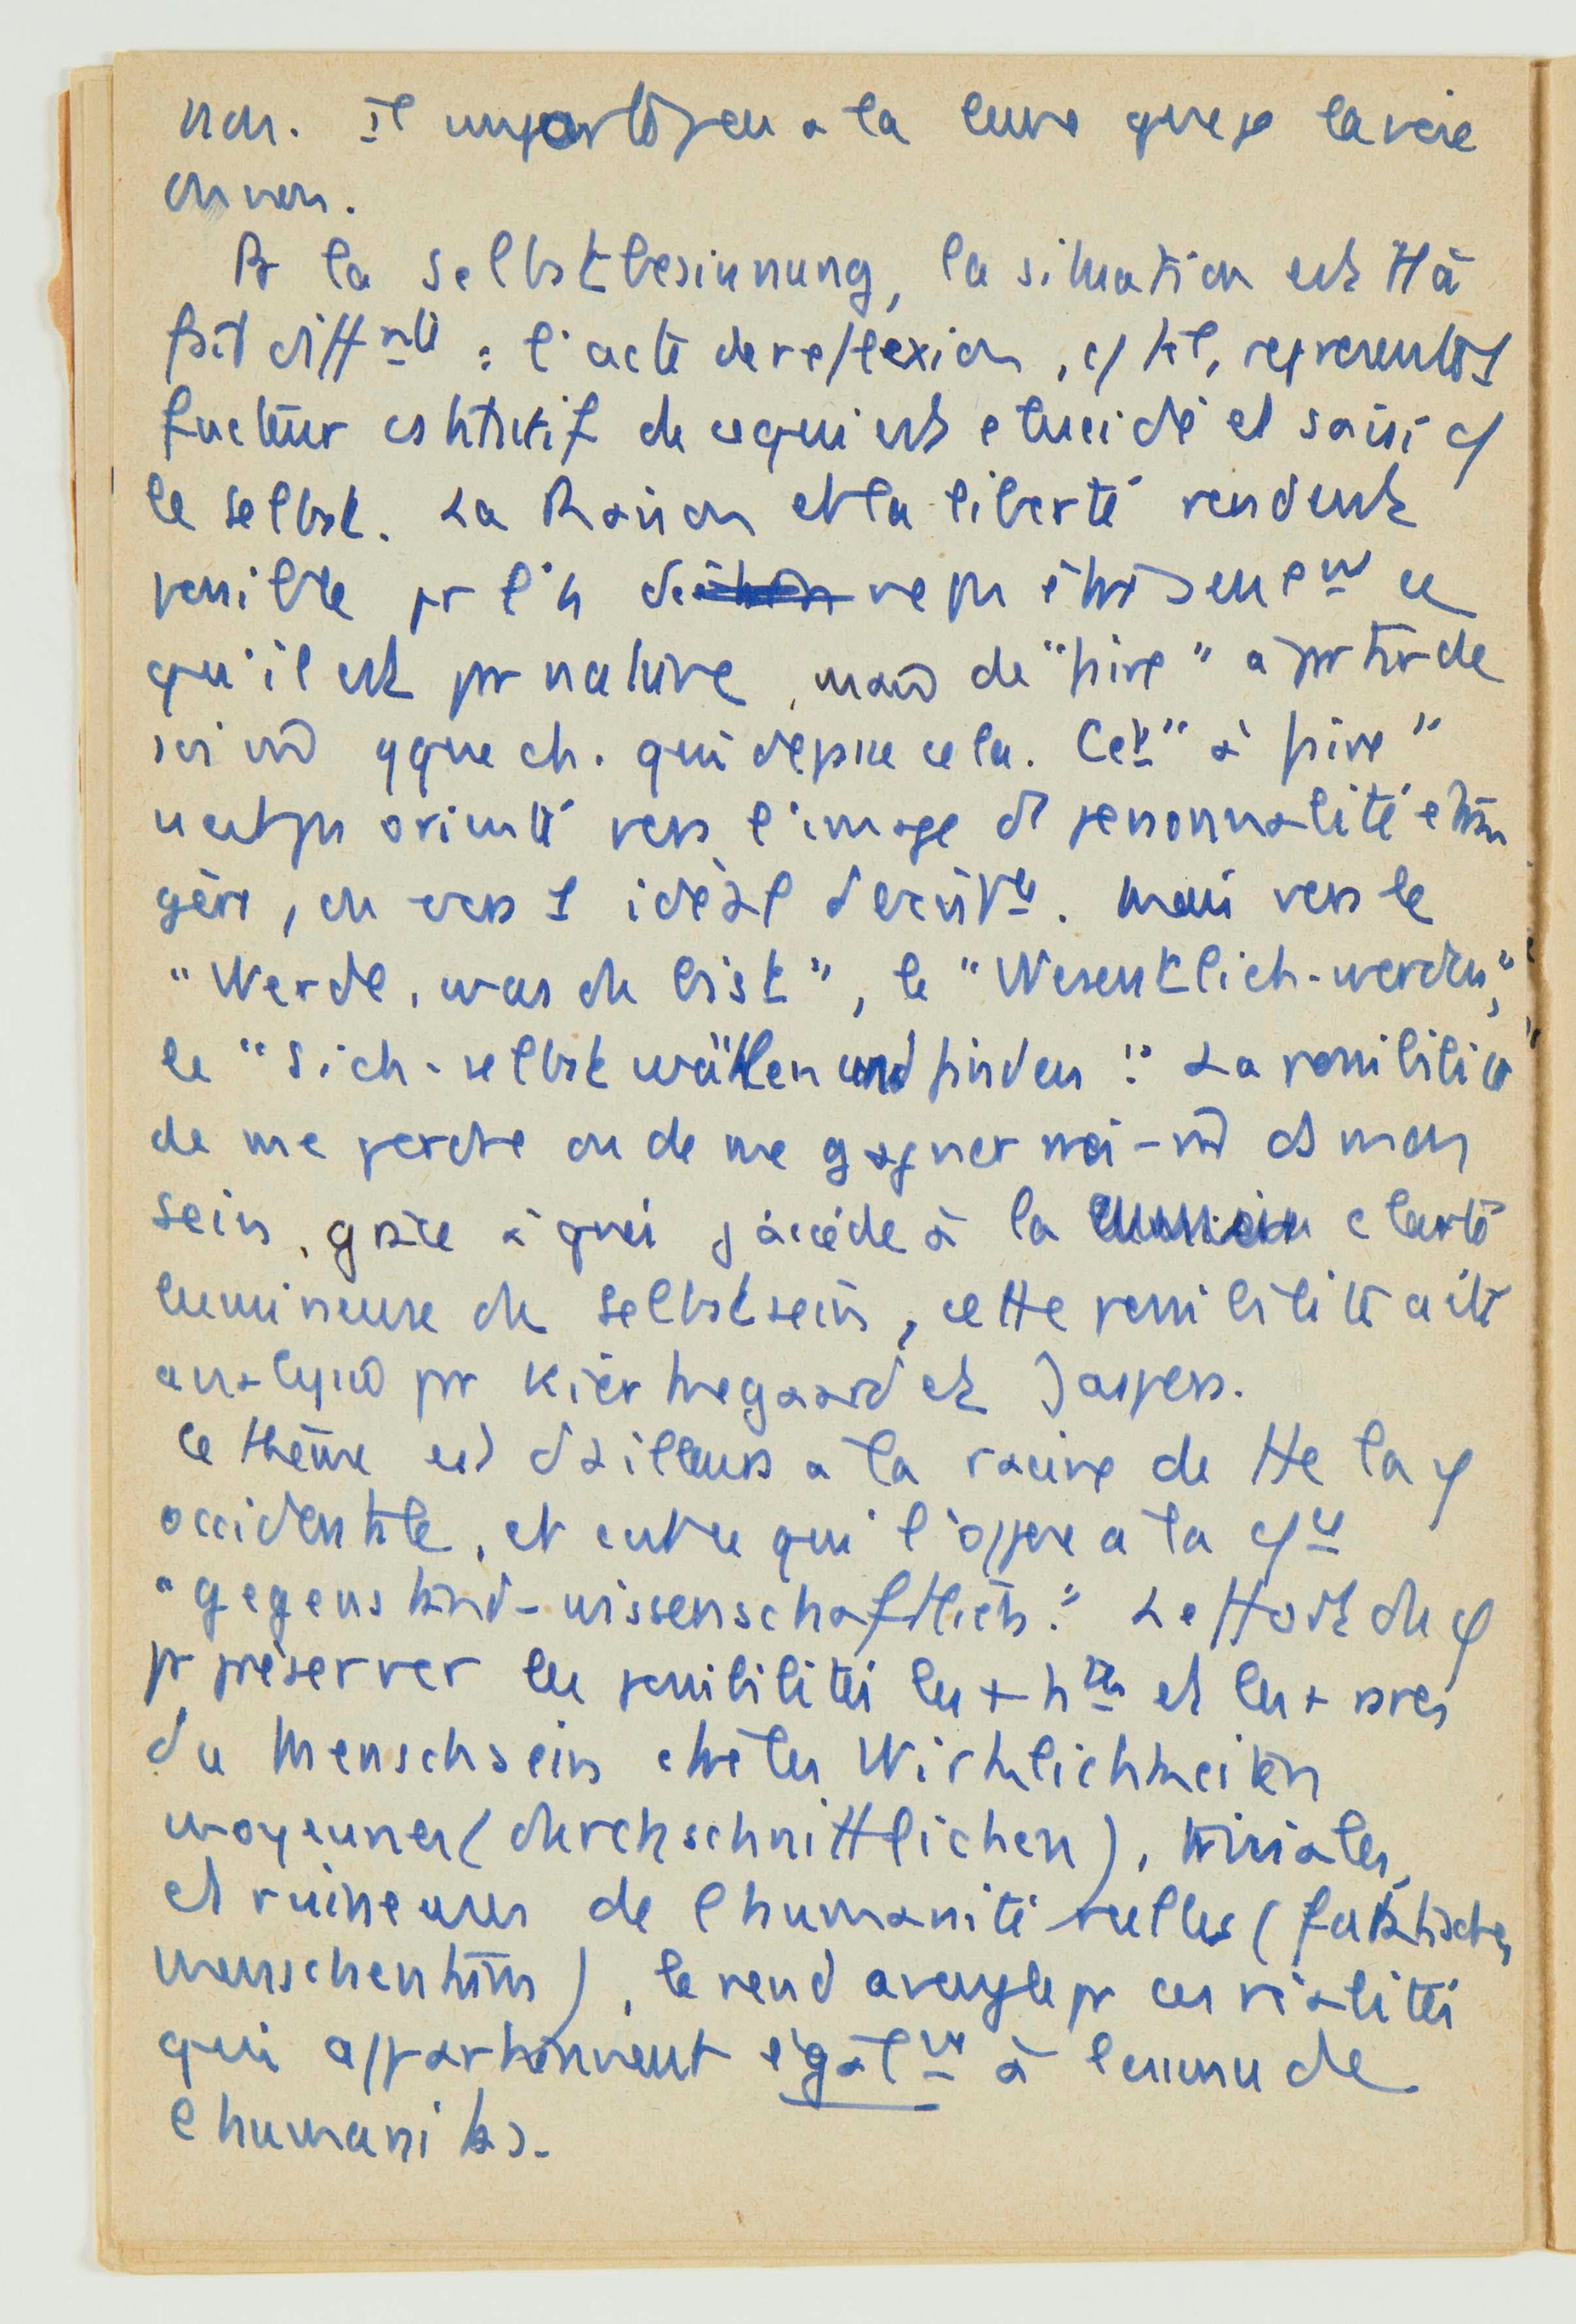 non. Il importe peu a la lune que je la voie
ou non.
Pr la Selbstbesinnung, la situation est tt à
fait diff nte : l'acte de reflexion, c/ tel, represente 1
facteur cstitutif de ce qui est elucidé et saisi c/
le Selbst. La Raison et la liberté rendent
possible pr l'h de ne pas être seule nt ce
qu'il est par nature, mais de "faire" à partir de
soi m̂ qque ch. qui depasse cela. Cet "à faire"
n'est pas orienté vers l'image de personnalité étran
gère, ou vers 1 idéal . Mais vers le
"Werde, was du bist", le "Wesentlich-werden",
le "Sich-selbst wählen und finden". La possibilité
de me perdre ou de me gagner moi-m̂ ds mon
sein, grâce à quoi j'accède à la clarté
lumineuse du Selbstsein, cette possibilité a été
analysée par Kierkegaard et Jaspers.
Ce thème est d'ailleurs a la racine de tte la φ
occidentale, et ce qui l'oppose a la
"gegenstand-wissenschaftlich". Le tort du φ
pr préserver les possibilités les + htes et les + vraies
du Menschsein ctre les Wirklichkeiten
moyennes (durchschnittlichen), triviales,
et ruineuses de l'humanité reelles (faktischen
Menschentums), le rend aveugle pr ces réalités
qui appartiennent égal nt à l'essence de
l'humanitas.